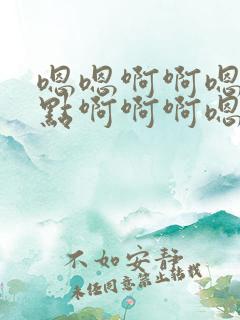 嗯嗯啊啊嗯
點啊啊啊嗯
不如安静
未经同意禁止转载